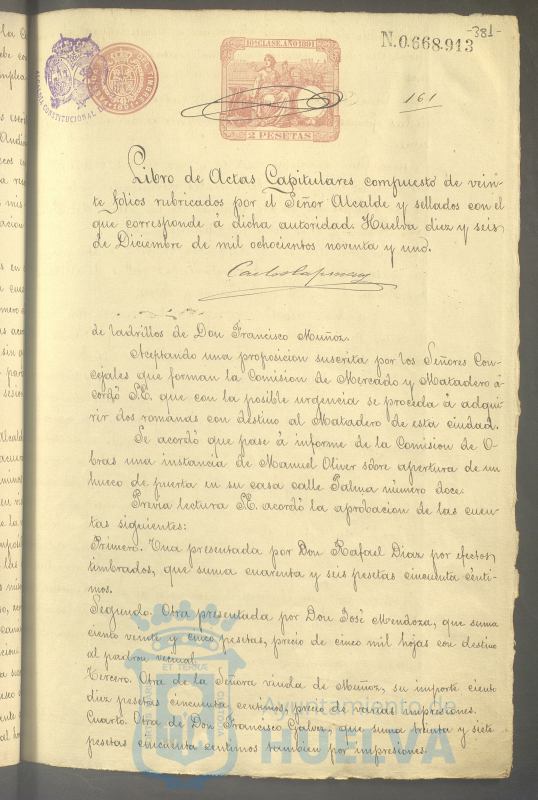 -381-
N.0.668.913
10ª CLASE. AÑO 1891
2 PESETAS
161
Libro de Actas Capitulares compuesto de vein
te folios rubricados por el Señor Alcalde y sellados con el
que corresponde á dicha autoridad Huelva diez y seis
de Diciembre de mil ochocientos noventa y uno.
de ladrillos de Don Francisco Muñoz.
Aceptando una proposicion suscrita por los Señores Con
cejales que forman la Comision de Mercado y Matadero á-
cordó S.E. que con la posible urgencia se proceda á adqui
rir dos romanas con destino al Matadero de esta ciudad.
Se acordó que pase á informe de la Comision de O-
bras una instancia de Manuel Oliver sobre apertura de un
hueco de puerta en su casa calle Palma número doce.
Previa lectura S.E. acordó la aprobacion de las cuen-
tas siguientes:
Primero. Una presentada por Don Rafael Diaz por efectos
timbrados, que suma cuarenta y seis pesetas cincuenta cénti-
mos.
Segundo. Otra presentada por Don José Mendoza, que suma
ciento veinte y cinco pesetas, precio de cinco mil hojas con destino
al padron vecinal.
Tercero. Otra de la Señora viuda de Muñoz, su importe ciento
diez pesetas cincuenta centimos, precio de varias impresiones.
Cuarto. Otra de Don Francisco Galvez, que suma treinta y siete
pesetas cincuenta centimos tambien por impresiones.
Ayuntamiento de
HUELVA